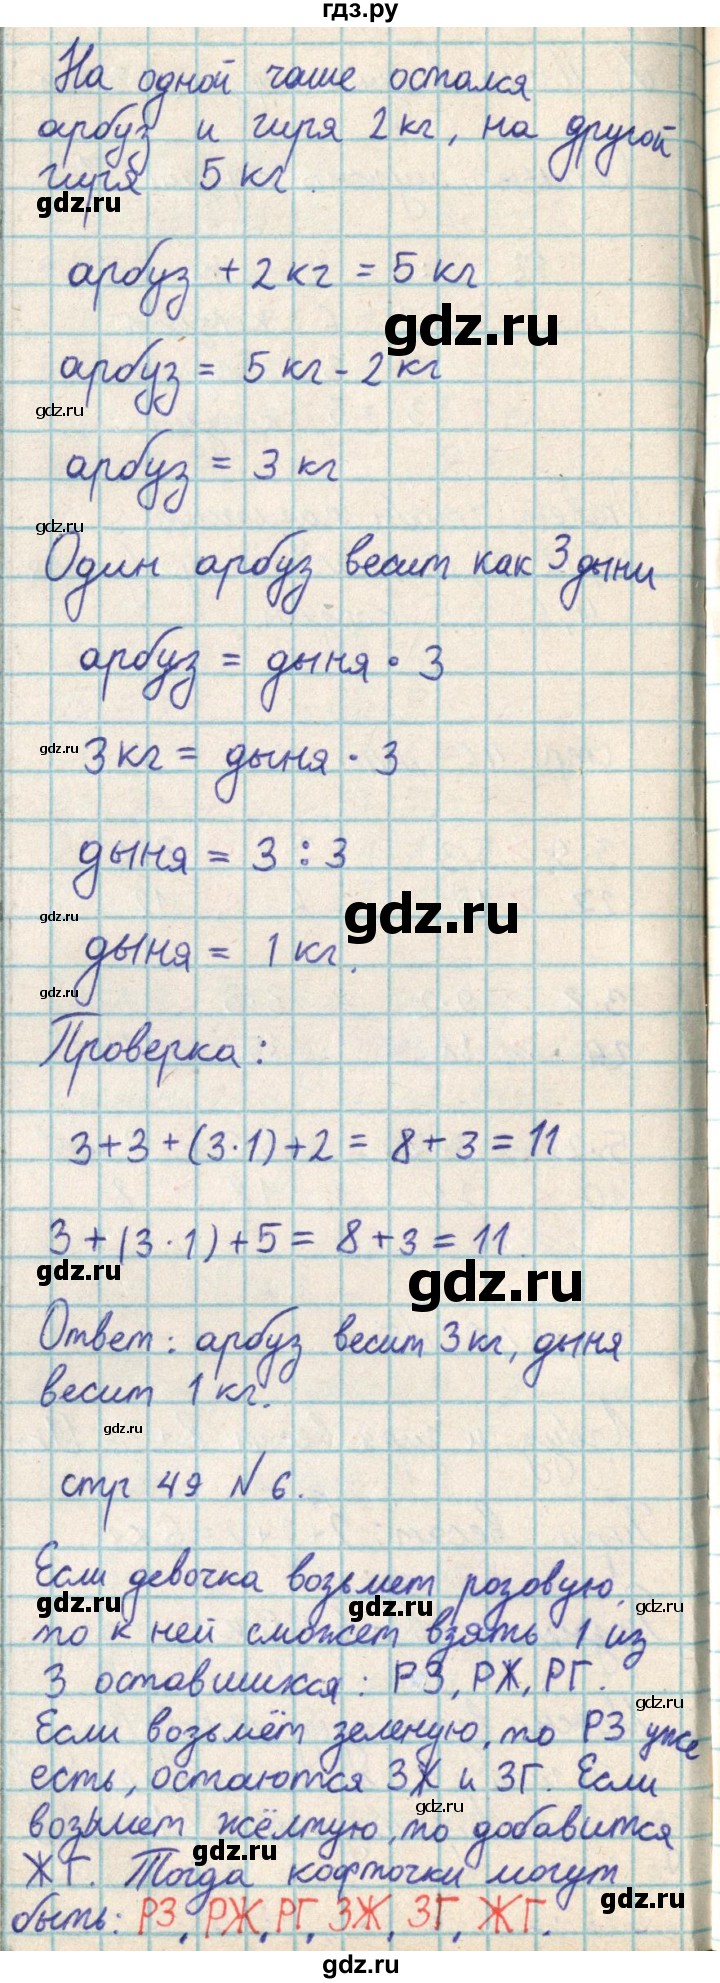 гдз.ру
На одной чаше остался
арбуз и гиря 2 кг, на другой
гиря 5 кг.
gdz.ru
арбуз + 2 кг = 5 кг
gdz.ru
арбуз = 5 кг - 2 кг
gdz.ru
арбуз = 3 кг
gdz.ru
Один арбуз весит как 3 дыни
арбуз = дыня · 3
gdz.ru
3 кг = дыня · 3
дыня = 3 : 3
gdz.ru
gdz.ru
дыня = 1 кг.
gdz.ru
Проверка:
3+3+(3·1)+2 = 8+3 = 11
3+(3·1)+5 = 8+3 = 11.
gdz.ru
gdz.ru
Ответ: арбуз весит 3 кг, дыня
весит 1 кг.
gdz.ru
стр 49 N 6.
Если девочка возьмет розовую,
gdz.ru
gdz.ru
gdz.ru
то к ней сможет взять 1 из
3 оставшихся: РЗ, РЖ, РГ.
gdz.ru
Если возьмёт зеленую, то РЗ уже
есть, остаются ЗЖ и ЗГ. Если
gdz.ru
возьмет жёлтую, то добавится
gdz.ru
ЖГ. Тогда кофточки могут
gdz.ru
быть: РЗ, РЖ, РГ, ЗЖ, ЗГ, ЖГ.
gdz.ru